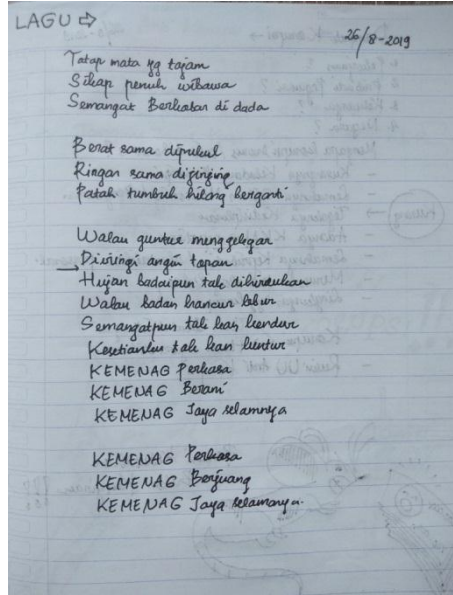 LAGU ⇨
26/8-2019
Tatap mata yg tajam
Sikap penuh wibawa
Semangat Berkobar di dada
Berat sama dipikul
Ringan sama dijinjing
Patah tumbuh hilang berganti
Walau guntur menggelegar
→ Diiringi angin topan
Hujan badaipun tak dihiraukan
Walau badan hancur lebur
Semangatpun tak kan kendur
Kesetianku tak kan luntur
KEMENAG Perkasa
KEMENAG Berani
KEMENAG Jaya selamnya
KEMENAG Perkasa
KEMENAG Berjuang
KEMENAG Jaya selamanya.